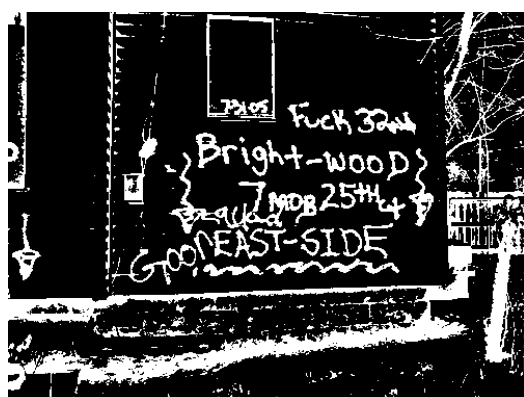 73105
Fuck 32nd
Bright-WOOD
7 MOB 25TH st
Squad
Goon
EAST-SIDE